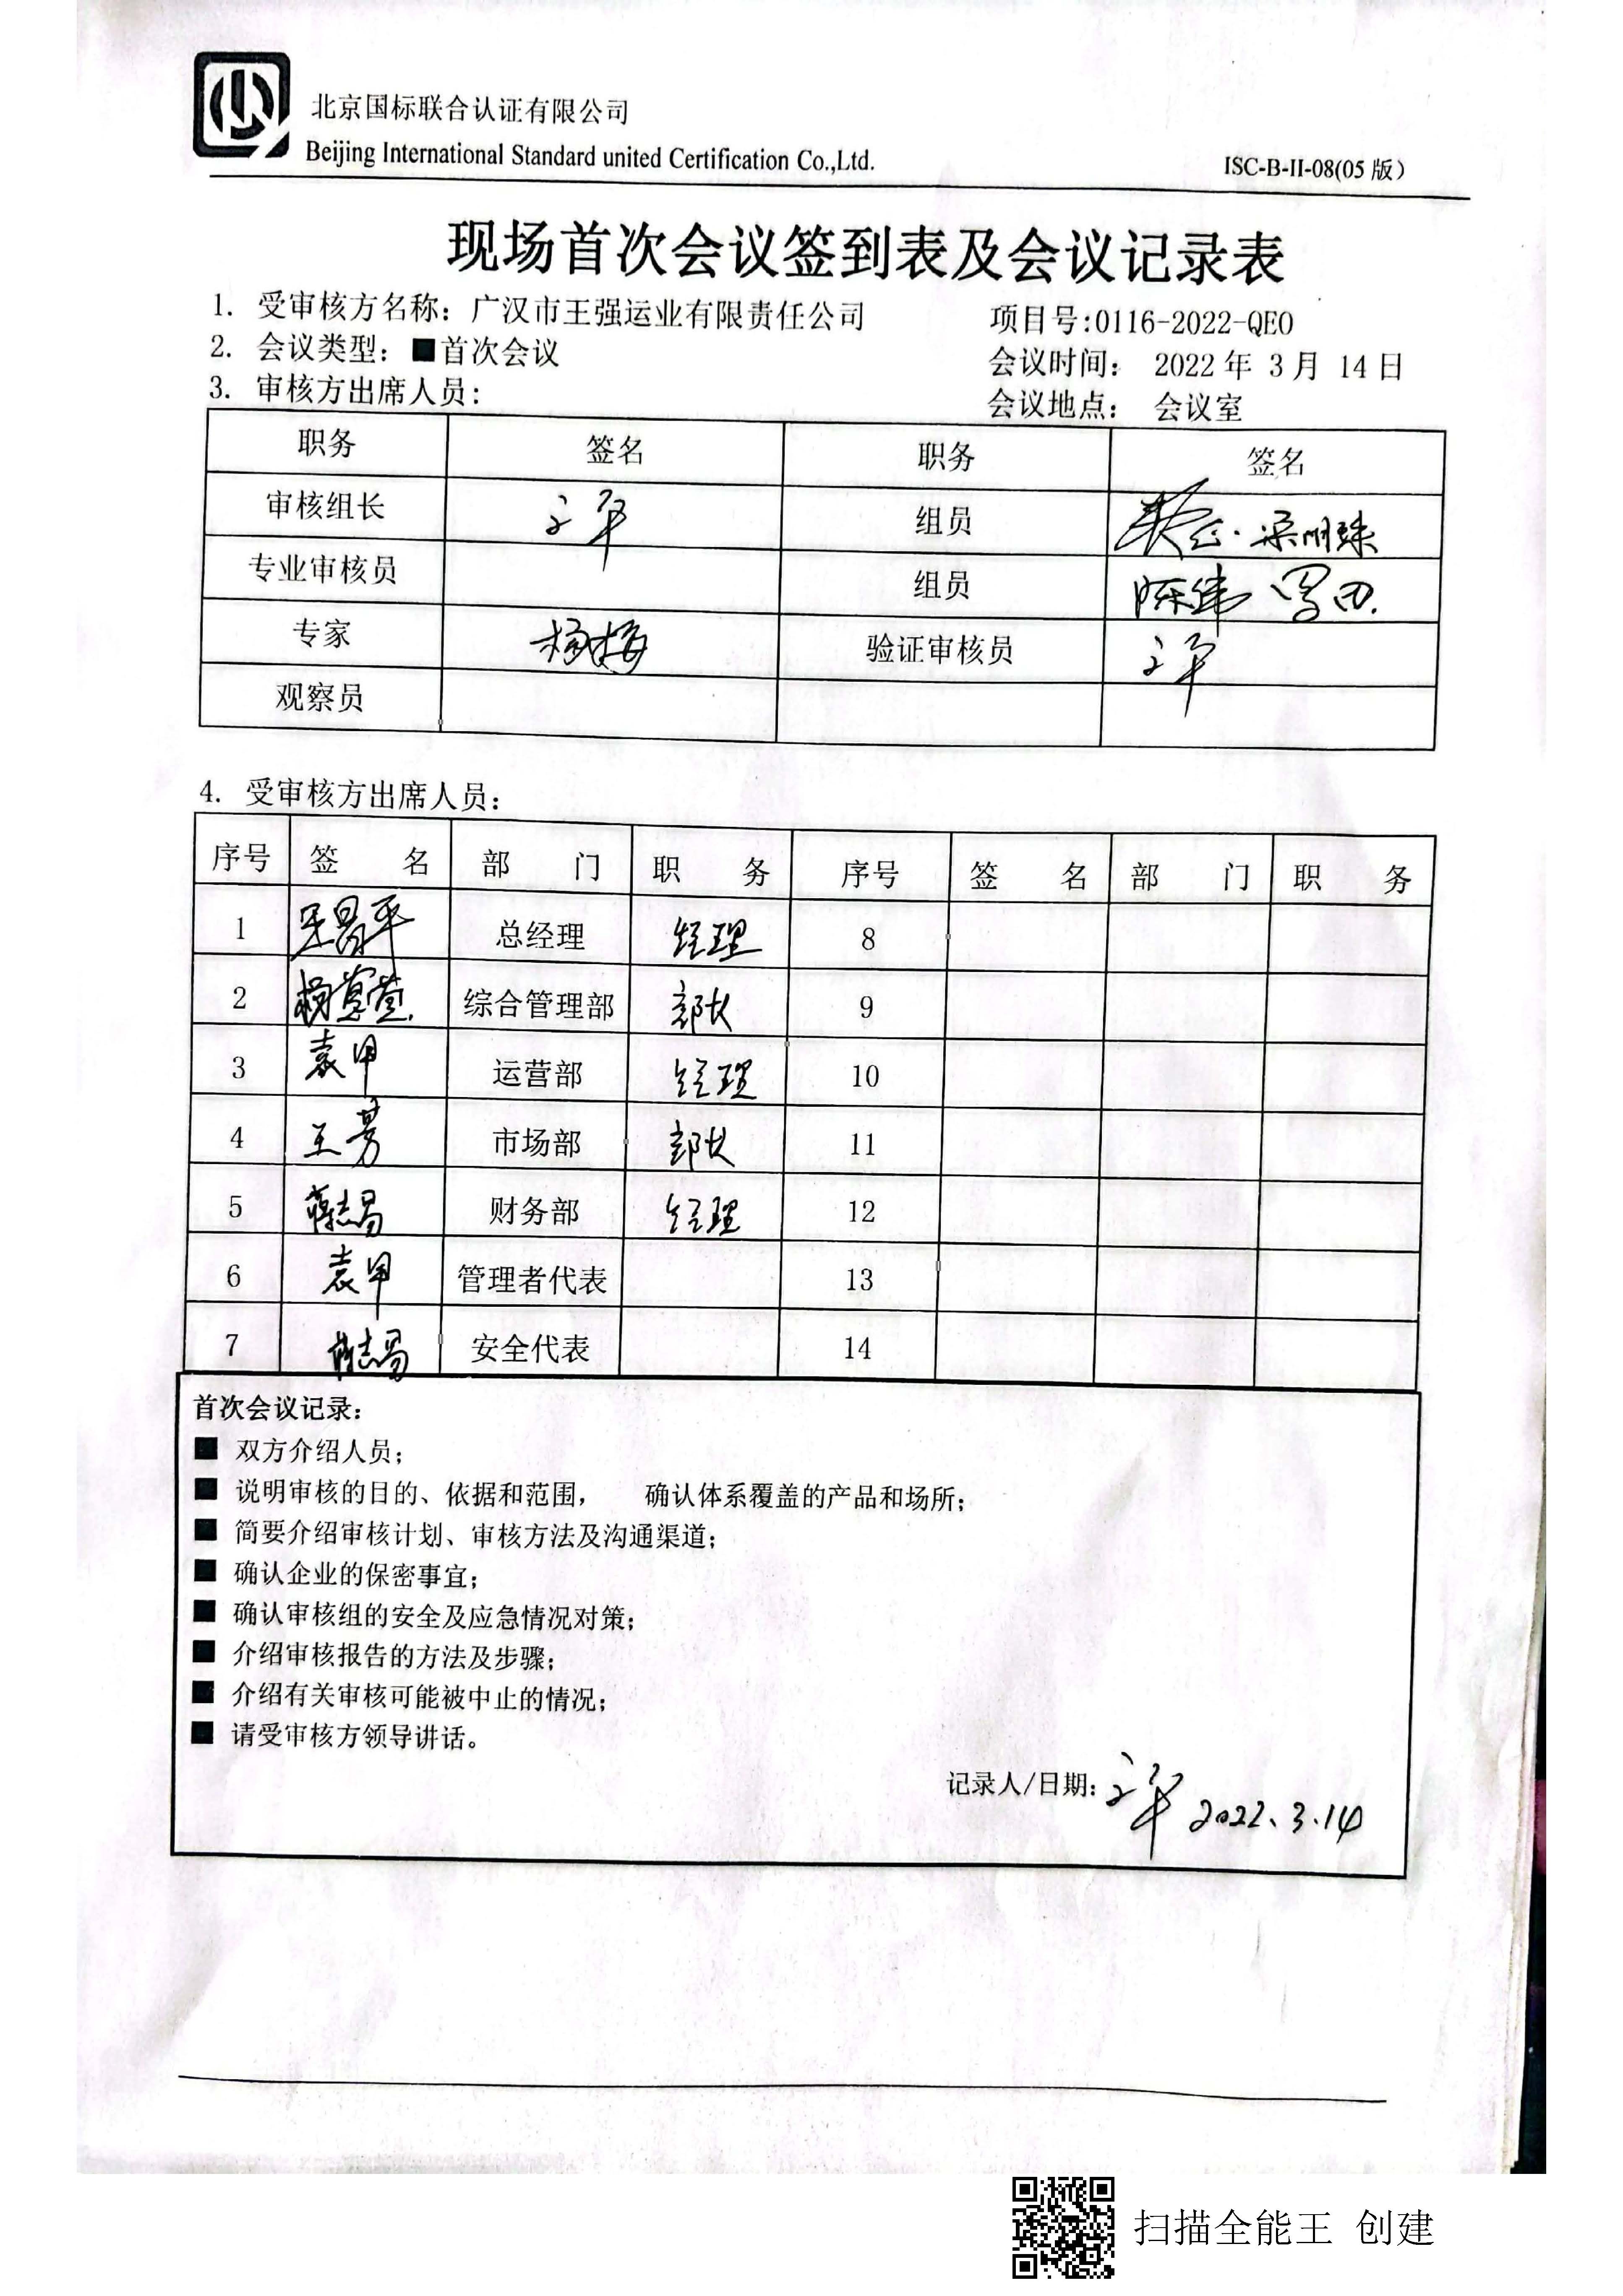 北京国标联合认证有限公司
Beijing International Standard united Certification Co.,Ltd.
ISC-B-II-08(05版)
现场首次会议签到表及会议记录表
1. 受审核方名称：广汉市王强运业有限责任公司 项目号:0116-2022-QEO
2. 会议类型：■首次会议 会议时间： 2022年 3月 14日
3. 审核方出席人员： 会议地点： 会议室
职务 签名 职务 签名
审核组长 组员 梁明珠
专业审核员 组员 陈伟
专家 杨梅 验证审核员
观察员
4. 受审核方出席人员：
序号 签 名 部 门 职 务 序号 签 名 部 门 职 务
1 总经理 经理 8
2 综合管理部 部长 9
3 袁甲 运营部 经理 10
4 王芳 市场部 部长 11
5 蒋志昌 财务部 经理 12
6 袁甲 管理者代表 13
7 蒋志昌 安全代表 14
首次会议记录：
■ 双方介绍人员；
■ 说明审核的目的、依据和范围， 确认体系覆盖的产品和场所；
■ 简要介绍审核计划、审核方法及沟通渠道；
■ 确认企业的保密事宜；
■ 确认审核组的安全及应急情况对策；
■ 介绍审核报告的方法及步骤；
■ 介绍有关审核可能被中止的情况；
■ 请受审核方领导讲话。
记录人/日期： 2022.3.14
扫描全能王 创建